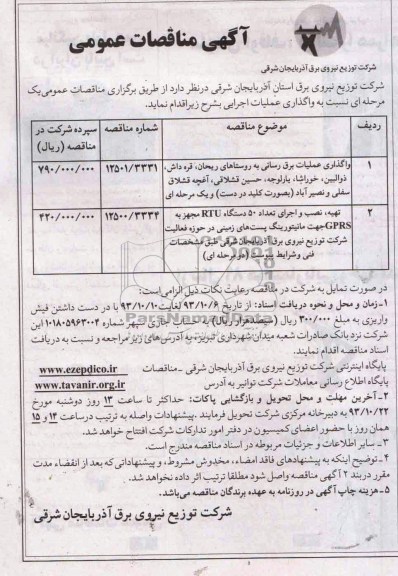 آگهی مناقصات عمومی
شرکت توزیع نیروی برق آذربایجان شرقی
شرکت توزیع نیروی برق استان آذربایجان شرقی درنظر دارد از طریق برگزاری مناقصات عمومی یک
مرحله ای نسبت به واگذاری عملیات اجرایی بشرح زیر اقدام نماید.
ردیف
موضوع مناقصه
شماره مناقصه
سپرده شرکت در مناقصه (ریال)
۱
واگذاری عملیات برق رسانی به روستاهای ریحان، قره داش،
ذوالبین، خوراشا، یارلوجه، حسین قشلاقی، آغچه قشلاق
سفلی و نصیر آباد (بصورت کلید در دست) و یک مرحله ای
۱۲۵۰۱/۳۳۳۱
۷۹۰/۰۰۰/۰۰۰
۲
تهیه، نصب و اجرای تعداد ۵۰ دستگاه RTU مجهز به
GPRS جهت مانیتورینگ پست‌های زمینی در حوزه فعالیت
شرکت توزیع نیروی برق آذربایجان شرقی طبق مشخصات
فنی وشرایط پیوست (دو مرحله ای)
۱۲۵۰۰/۳۳۳۴
۴۲۰/۰۰۰/۰۰۰
در صورت تمایل به شرکت در مناقصه رعایت نکات ذیل الزامی است:
۱-زمان و محل و نحوه دریافت اسناد: از تاریخ ۹۳/۱۰/۶ لغایت ۹۳/۱۰/۱۰ با در دست داشتن فیش
واریزی به مبلغ ۳۰۰/۰۰۰ ریال (سیصدهزار ریال) به حساب جاری سپهر شماره ۰۱۰۱۸۰۵۹۶۳۰۰۴ این
شرکت نزد بانک صادرات شعبه میدان شهرداری تبریز، به آدرس های زیر مراجعه و نسبت به دریافت
اسناد مناقصه اقدام نمایند.
پایگاه اینترنتی شرکت توزیع نیروی برق آذربایجان شرقی -مناقصات www.ezepdico.ir
پایگاه اطلاع رسانی معاملات شرکت توانیر به آدرس www.tavanir.org.ir
۲-آخرین مهلت و محل تحویل و بازگشایی پاکات: حداکثر تا ساعت ۱۳ روز دوشنبه مورخ
۹۳/۱۰/۲۲ به دبیرخانه مرکزی شرکت تحویل فرمایند .پیشنهادات واصله به ترتیب درساعت ۱۴ و ۱۵
همان روز با حضور اعضای کمیسیون در دفتر امور تدارکات شرکت افتتاح خواهد شد.
۳-سایر اطلاعات و جزئیات مربوطه در اسناد مناقصه مندرج است.
۴-توضیح اینکه به پیشنهادهای فاقد امضاء، مخدوش مشروط، و پیشنهاداتی که بعد از انقضاء مدت
مقرر دربند ۲ آگهی مناقصه واصل شود مطلقا ترتیب اثر داده نخواهد شد.
۵-هزینه چاپ آگهی در روزنامه به عهده برندگان مناقصه می‌باشد.
شرکت توزیع نیروی برق آذربایجان شرقی